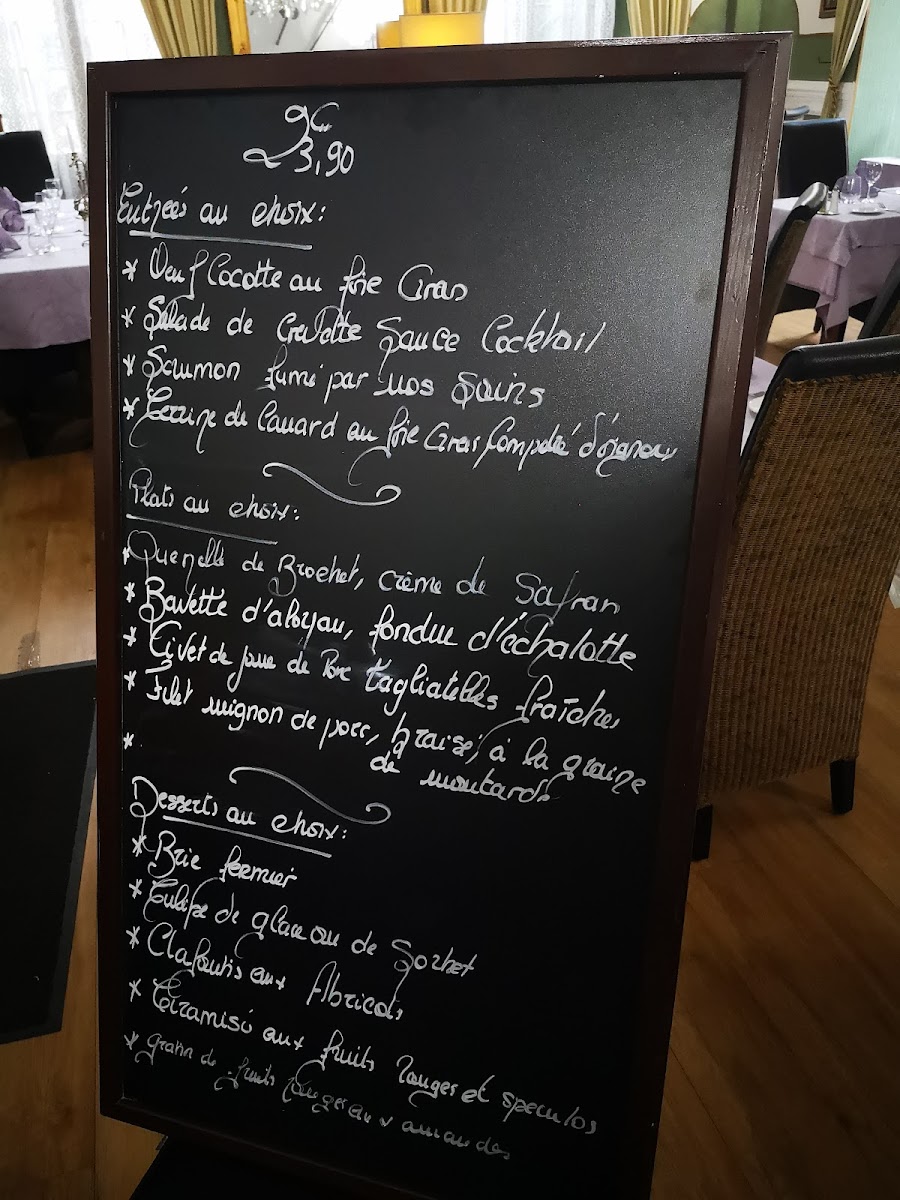 23,90
Entrées au choix:
* Oeuf Cocotte au foie Gras
* Salade de Crevette Sauce Cocktail
* Saumon fumé par nos Soins
* Terrine de Canard au foie Gras Compoté d'oignons
Plats au choix:
* Quenelle de Brochet, crème de Safran
* Bavette d'aloyau, fondue d'échalotte
* Civet de joue de Porc tagliatelles fraîches
* Filet mignon de porc, braisé, à la graine
de moutarde
*
Desserts au choix:
* Brie fermier
* Tulipe de glace ou de Sorbet
* Clafoutis aux Abricots
* Tiramisó aux fruits rouges et speculos
* gratin de fruits rouges aux amandes